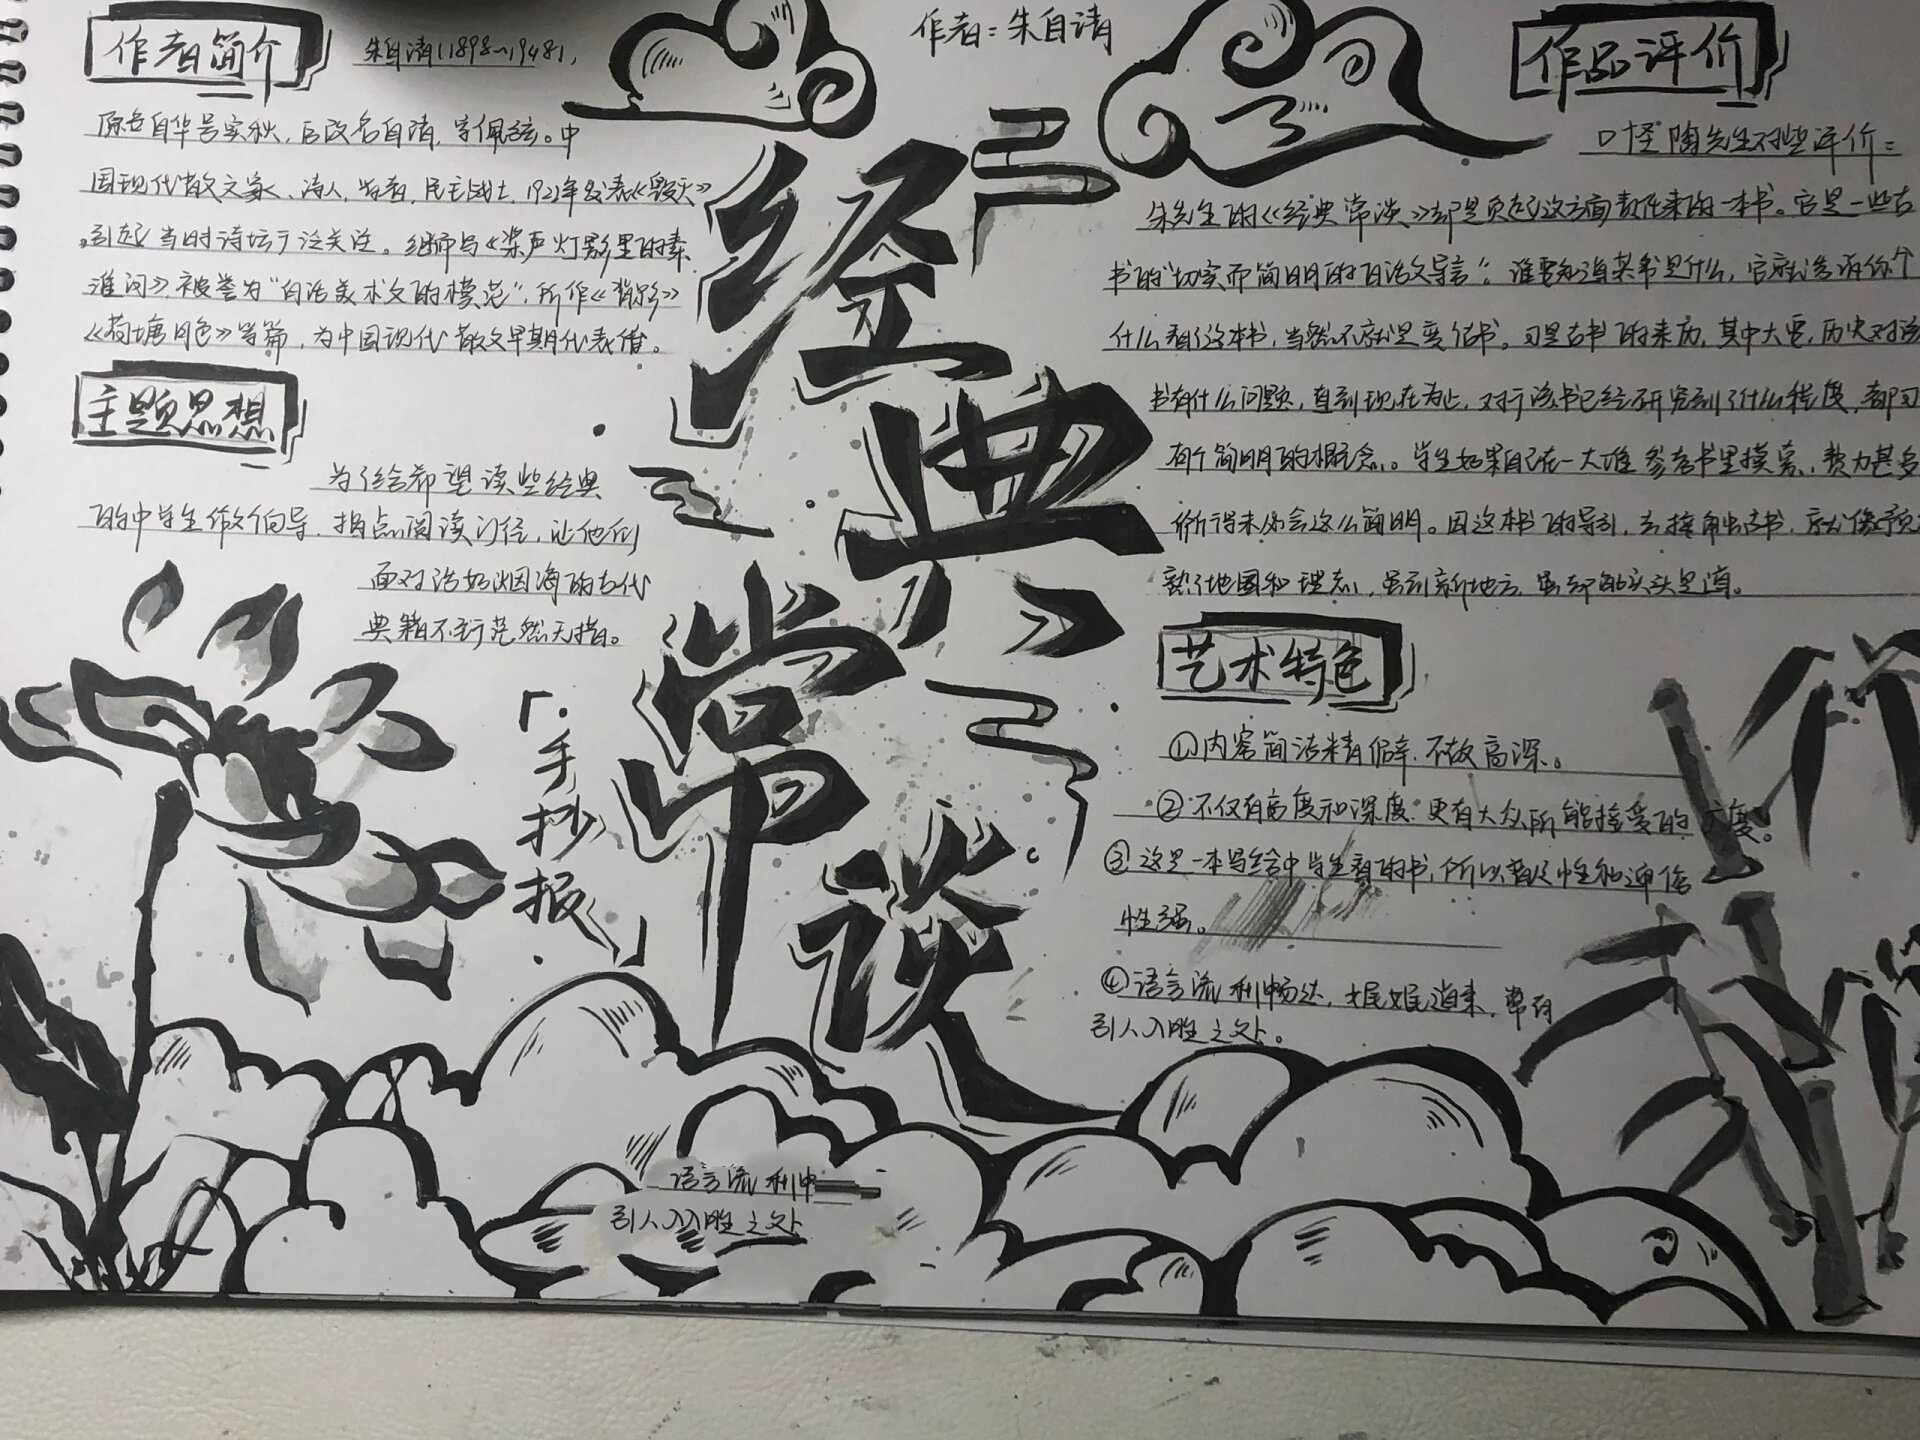 作者:朱自清
经典常谈
「手抄报」
作者简介
朱自清(1898~1948),
原名自华号实秋,后改名自清,字佩弦。中
国现代散文家、诗人,学者,民主战士,1921年发表《毁灭》
,引起当时诗坛广泛关注。继而写《桨声灯影里的秦
淮河》,被誉为“白话美术文的模范”,所作《背影》
《荷塘月色》等篇,为中国现代散文早期代表作。
主题思想
为了给希望读些经典
的中学生做个向导,指点阅读门径,让他们
面对浩如烟海的古代
典籍不至于茫然无措。
作品评价
叶圣陶先生对些评价:
朱先生的《经典常谈》却是负起这方面责任来的一本书。它是一些古
书的“切实而简明的白话文导言”。谁要知道某书是什么,它就告诉你个
什么看了这本书,当然不就是变古书。可是古书的来历,其中大要,历史对该
书有什么问题,直到现在为止,对于该书已经研究到了什么程度,都可
有个简明的概念。学生如果自己在一大堆参考书里摸索,费力甚多
所得未必会这么简明。因这本书的导引,去接触古书,就像预先
熟了地图和地理志,虽到新地方,虽却能头头是道。
艺术特色
①内容简洁精僻,不故高深。
②不仅有高度和深度,更有大众所能接受的广度。
③这是一本写给中学生看的书,所以普及性和通俗
性强。
④语言流利畅达,娓娓道来,常有
引人入胜之处。
语言流利
引人入入胜之处